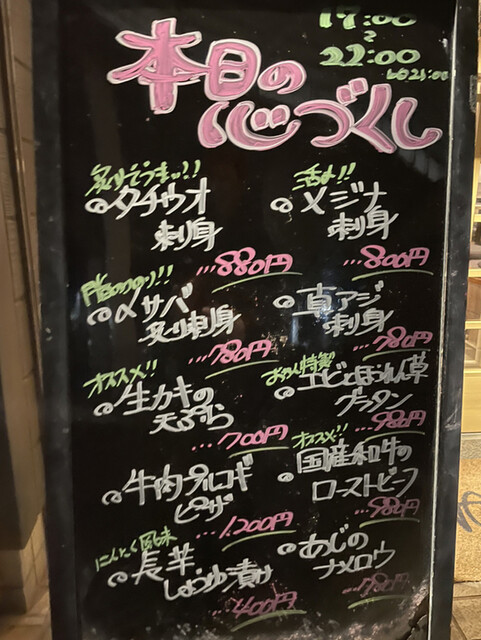 17:00
〜
22:00
LO21:00
本日の
心づくし
炙りでうまっ!!
タチウオ
刺身
…880円
脂ののり!!
〆サバ
炙り刺身
…780円
オススメ!!
生カキの
天ぷら
…700円
牛肉プルコギ
ピザ
…1,200円
にんにく風味
長芋
しょうゆ漬け
…400円
活〆!!
メジナ
刺身
…800円
草アジ
刺身
…780円
特製
エビとほうれん草
グラタン
…980円
オススメ!!
国産和牛の
ローストビーフ
…980円
あじの
ナメロウ
…780円